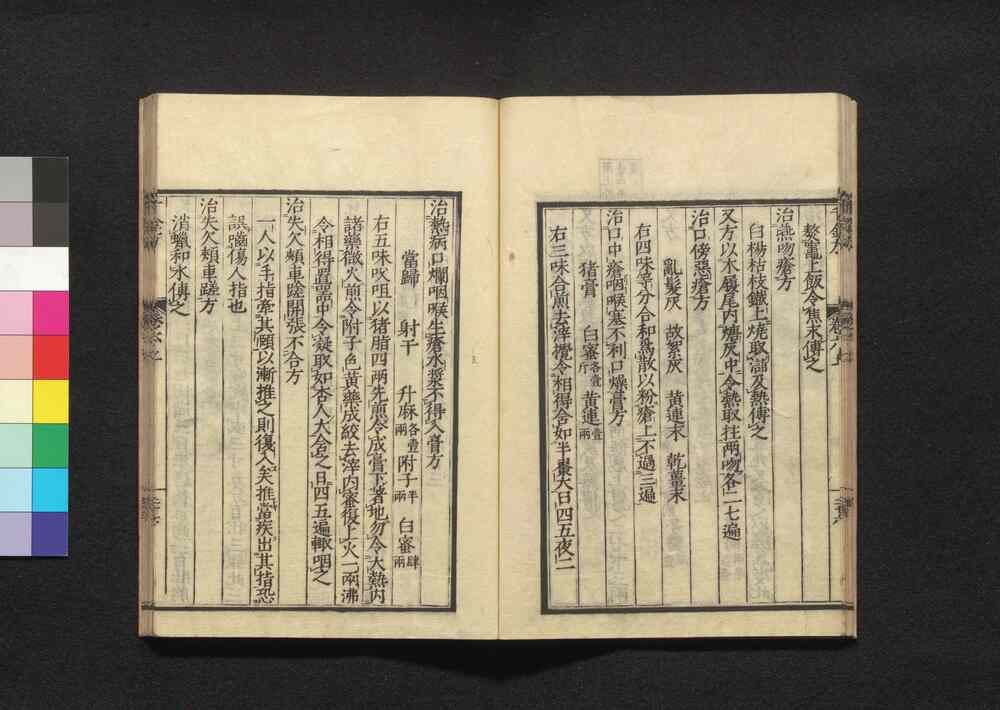 熬竈上飯令焦末傅之
治燕吻瘡方
白楊枯枝鐵上燒取𤃶及熱傅之
又方以木履尾內煻灰中令熱取拄兩吻各二七遍
治口傍惡瘡方
亂髮灰 故絮灰 黃連末 乾薑末
右四味等分合和爲散以粉瘡上不過三遍
治口中瘡咽喉塞不利口燥膏方
猪膏 白蜜各壹斤 黃連壹兩
右三味合煎去滓攪令相得含如半棗大日四五夜二
治熱病口爛咽喉生瘡水漿不得入膏方
當歸 射干 升麻各壹兩 附子半兩 白蜜肆兩
右五味㕮咀以猪脂四兩先煎令成膏下著地勿令大熱內
諸藥微火煎令附子色黃藥成絞去滓內蜜復上火一兩沸
令相得置器中令凝取如杏人大含之日四五遍輒咽之
治失欠頰車蹉開張不合方
一人以手指牽其頤以漸推之則復入矣推當疾出其指恐
誤齧傷人指也
治失欠頰車蹉方
消蠟和水傅之